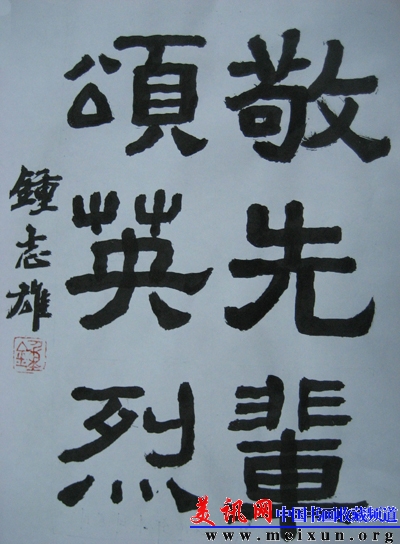 敬先輩
頌英烈
鍾志雄
美讯网 中国书画收藏频道
www.meixun.org